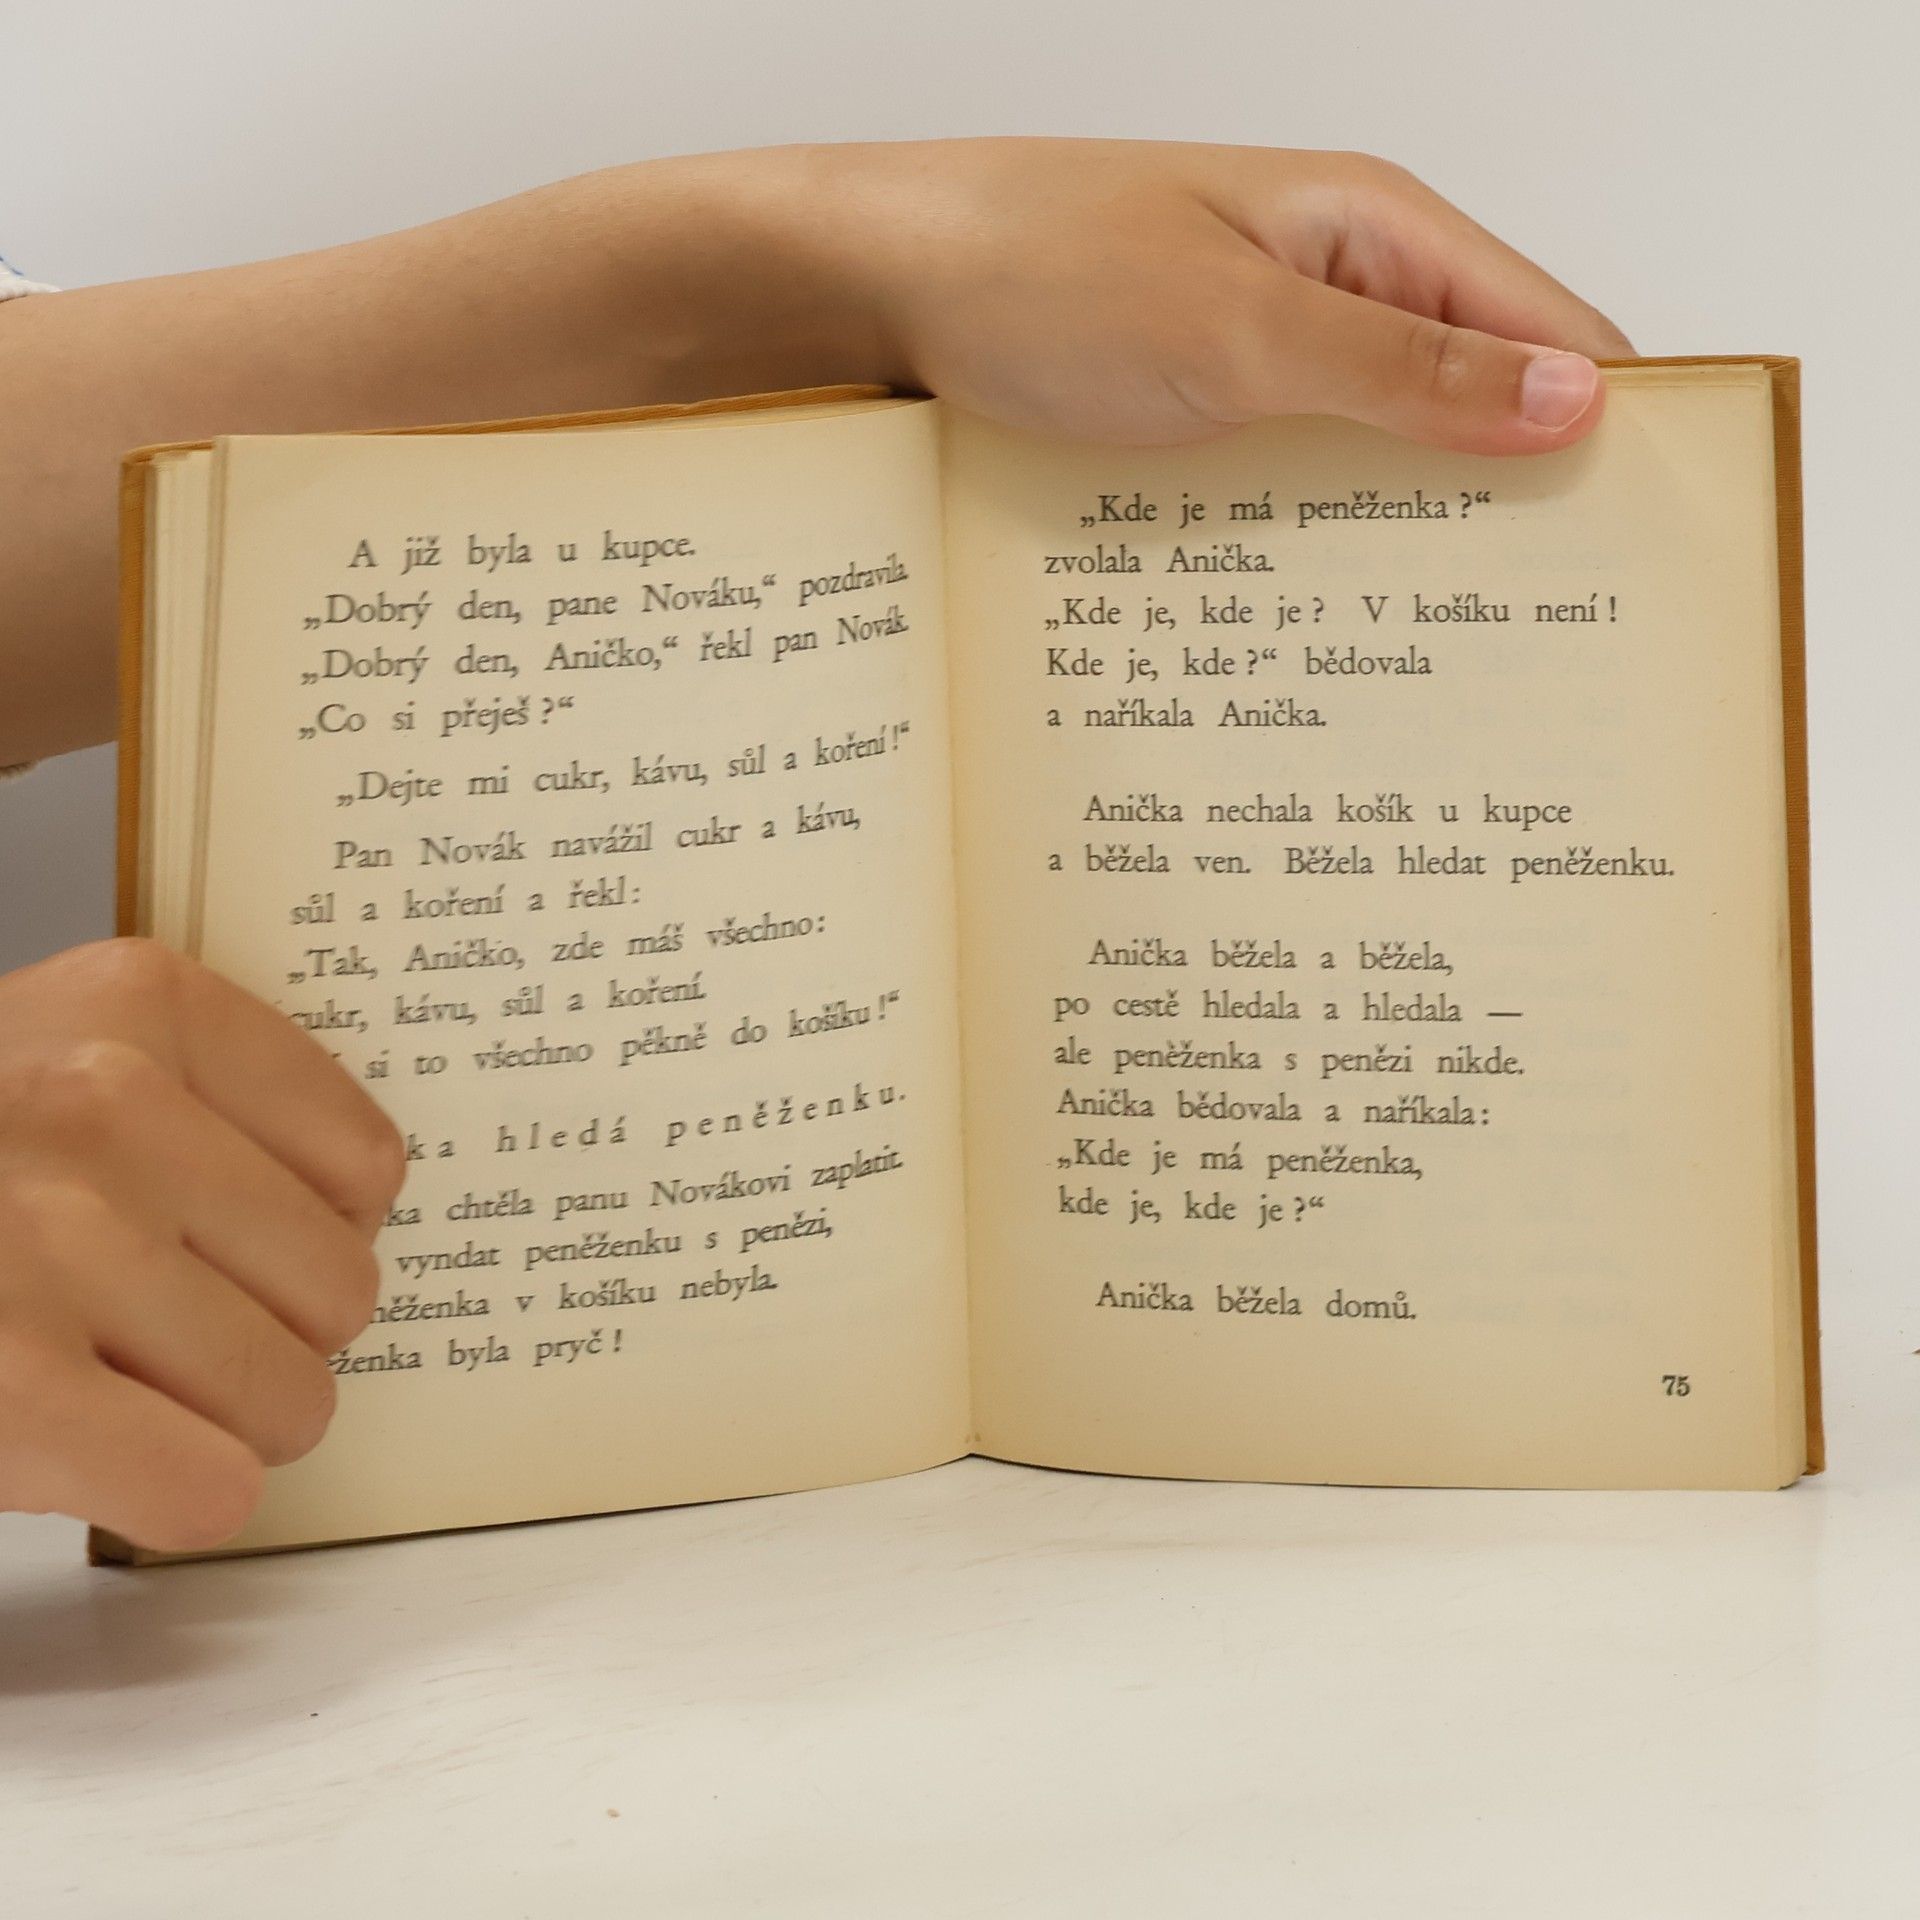 A již byla u kupce.
„Dobrý den, pane Nováku,“ pozdravila.
„Dobrý den, Aničko,“ řekl pan Novák.
„Co si přeješ?“
„Dejte mi cukr, kávu, sůl a koření!“
Pan Novák navážil cukr a kávu,
sůl a koření a řekl:
„Tak, Aničko, zde máš všechno:
cukr, kávu, sůl a koření.
si to všechno pěkně do košíku!“
hledá peněženku.
chtěla panu Novákovi zaplatit.
vyndat peněženku s penězi,
v košíku nebyla.
byla pryč!
„Kde je má peněženka?“
zvolala Anička.
„Kde je, kde je? V košíku není!
Kde je, kde?“ bědovala
a naříkala Anička.
Anička nechala košík u kupce
a běžela ven. Běžela hledat peněženku.
Anička běžela a běžela,
po cestě hledala a hledala —
ale peněženka s penězi nikde.
Anička bědovala a naříkala:
„Kde je má peněženka,
kde je, kde je?“
Anička běžela domů.
75